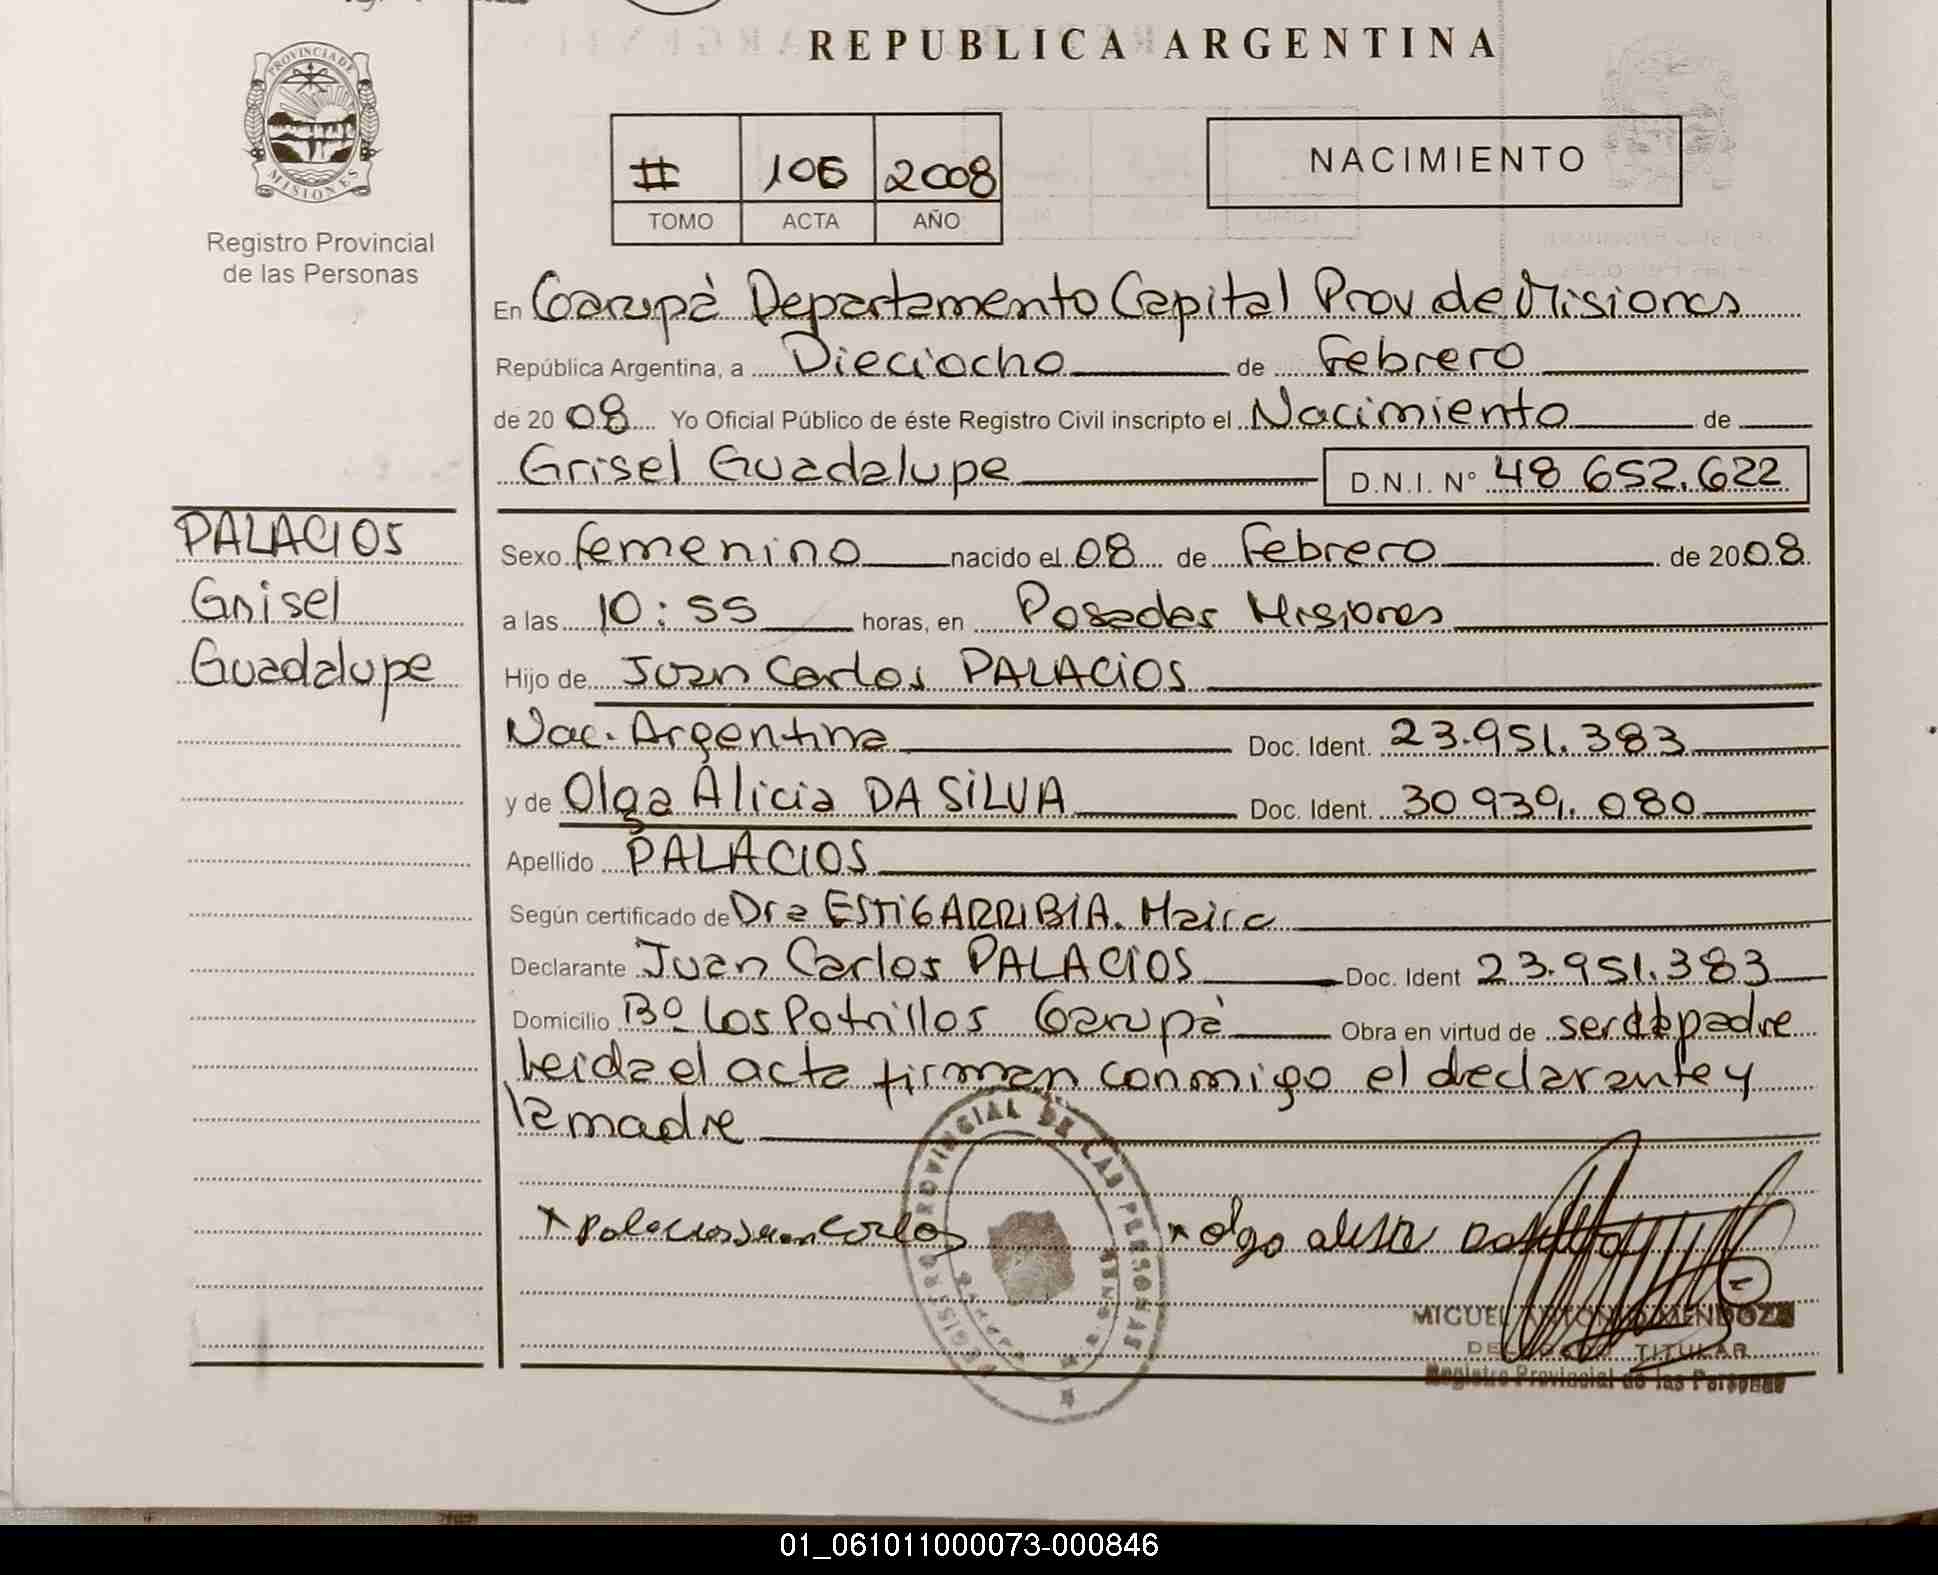 REPUBLICA ARGENTINA
PROVINCIA DE MISIONES
Registro Provincial
de las Personas
# 106 2008
TOMO ACTA AÑO
NACIMIENTO
En Garupá Departamento Capital Prov de Misiones
República Argentina, a Dieciocho de Febrero
de 2008 Yo Oficial Público de éste Registro Civil inscripto el Nacimiento de
Grisel Guadalupe D.N.I. N° 48 652.622
PALACIOS
Grisel
Guadalupe
Sexo femenino nacido el 08 de Febrero de 2008.
a las 10:55 horas, en Posadas Misiones
Hijo de Juan Carlos PALACIOS
Nac. Argentina Doc. Ident. 23.951.383
y de Olga Alicia DA SILVA Doc. Ident. 30 939. 080
Apellido PALACIOS
Según certificado de Dra ESTIGARRIBIA. Maira
Declarante Juan Carlos PALACIOS Doc. Ident 23.951.383
Domicilio Bº Los Potrillos Garupá Obra en virtud de ser padre
Leida el acta firman conmigo el declarante y
la madre
x Palacios Juan Carlos
REGISTRO PROVINCIAL DE LAS PERSONAS
MISIONES
x olga
MIGUEL ANTONIO MENDOZA
DELEGADO TITULAR
Registro Provincial de las Personas
01_061011000073-000846